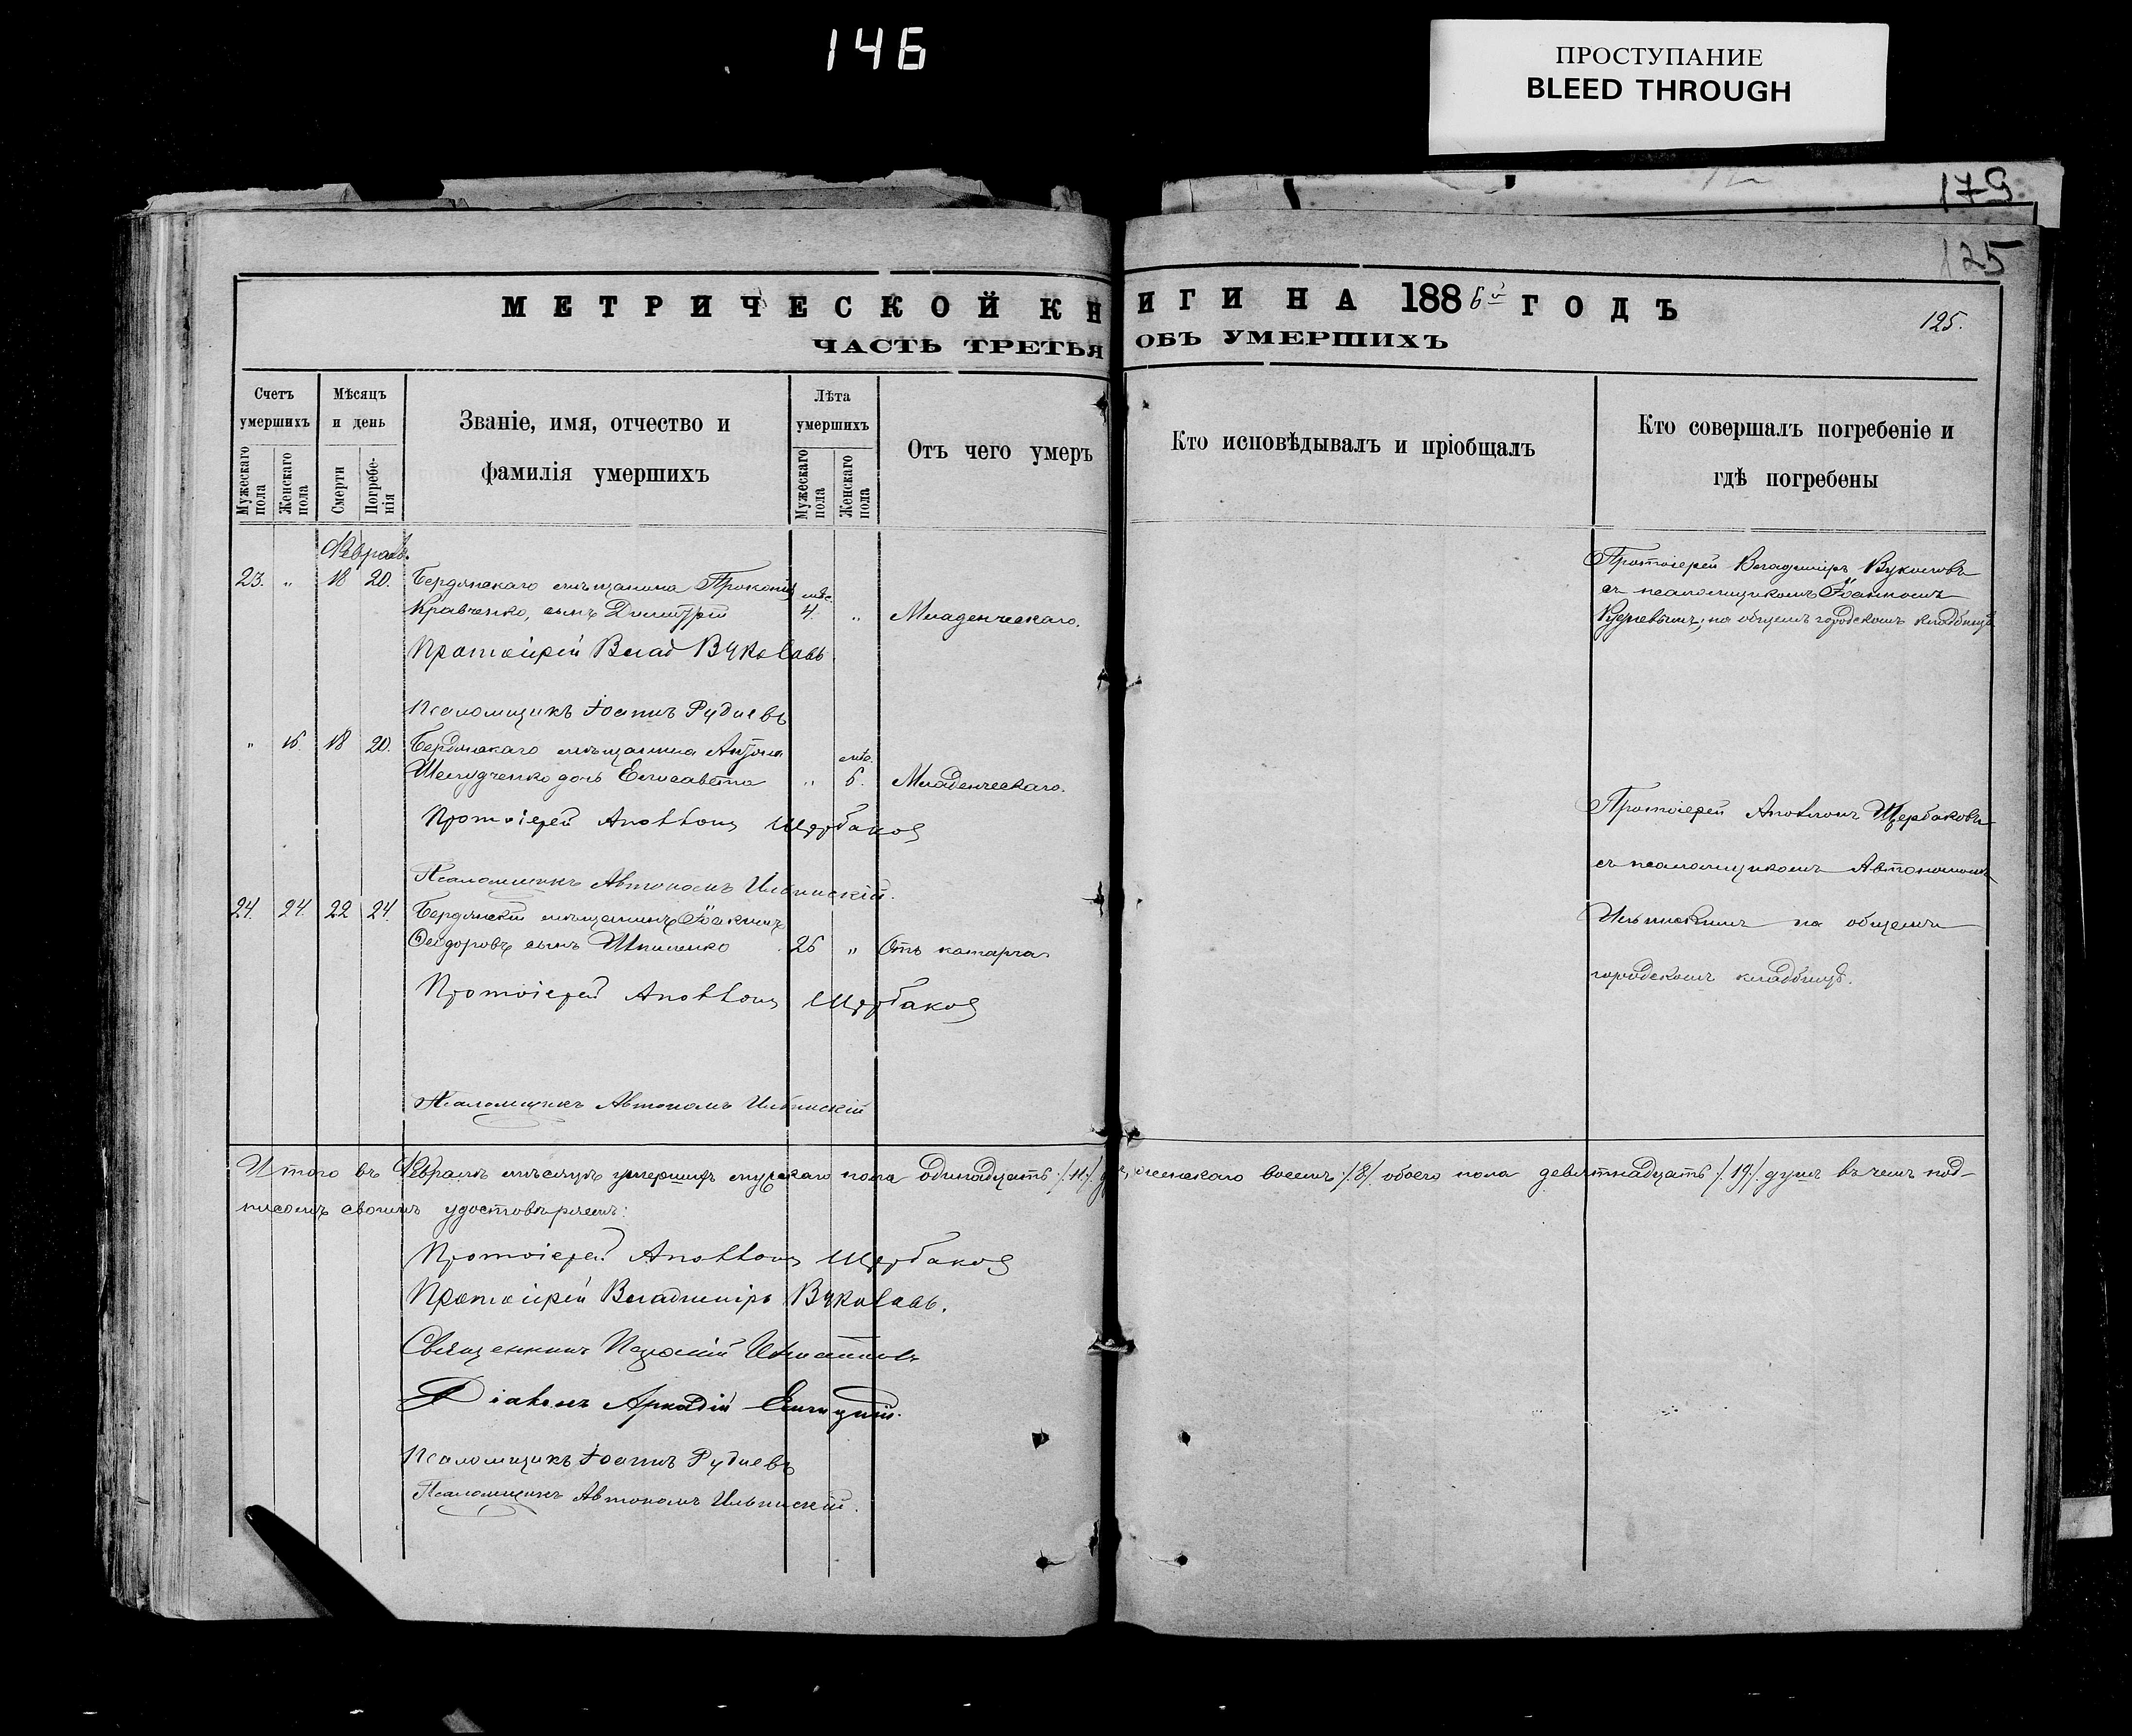 146
ПРОСТУПАНИЕ
BLEED THROUGH
179
125
МЕТРИЧЕСКОЙ КНИГИ НА 1886й ГОДЪ
125.
ЧАСТЬ ТРЕТЬЯ ОБЪ УМЕРШИХЪ
Счетъ умершихъ
Мѣсяцъ и день
Званіе, имя, отчество и фамилія умершихъ
Лѣта умершихъ
Отъ чего умеръ
Кто исповѣдывалъ и пріобщалъ
Кто совершалъ погребеніе и гдѣ погребены
Мужескаго пола
Женскаго пола
Смерти
Погребенія
Мужескаго пола
Женскаго пола
Февраль.
23. " 18 20. Бердянскаго мѣщанина Прокопія
Кравченко, сынъ Димитрій 4. " Младенческаго.
Протоіерей Владиміръ Вуколовъ
съ псаломщикомъ Іоанномъ
на общемъ городскомъ кладбищѣ
Протоіерей Влад Вуколовъ
Псаломщикъ Іоаннъ Рудневъ
" 18 20. Бердянскаго мѣщанина
дочь Елисавета " Младенческаго.
Протоіерей Аполлонъ Щербаковъ
Псаломщикъ Автономъ Ильинскій.
Протоіерей Аполлонъ Щербаковъ
съ псаломщикомъ Автономомъ
Ильинскимъ на общемъ
городскомъ кладбищѣ.
24. 24. 22 24. Бердянскій мѣщанинъ
Ѳеодоровъ сынъ "
Отъ катарра
Протоіерей Аполлонъ Щербаковъ
Псаломщикъ Автономъ Ильинскій
Итого въ Февралѣ мѣсяцѣ умершихъ мужскаго пола одинадцать /:11:/ женскаго восемь /:8:/ обоего пола девятнадцать /:19:/ душъ въ чемъ под-
писомъ своимъ удостовѣряемъ:
Протоіерей Аполлонъ Щербаковъ
Протоіерей Владиміръ Вуколовъ.
Священникъ
Діаконъ Аркадій
Псаломщикъ Іоаннъ Рудневъ
Псаломщикъ Автономъ Ильинскій.